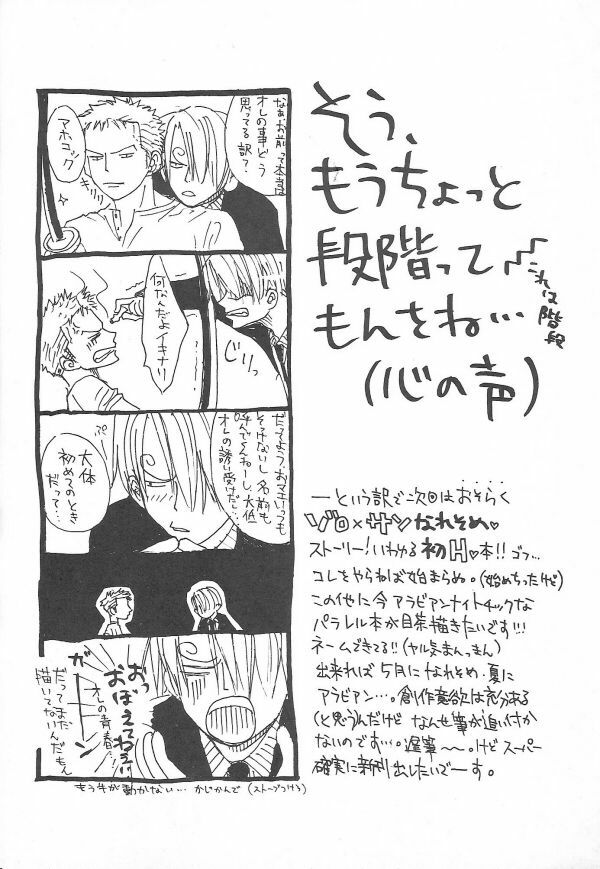 なぁ、お前って本当は
オレの事どう
思ってる訳?
アホコック
きりっ
何なんだよ
イキナリ
じりっ
だってよう、おマエいっつも
そっけないし名前も
呼んでくんねーし、大体
オレの誘い受けだし…
ぷ
大体
初めてのとき
だって…
おっ
おぼえてねえ!!
オレの青春…!
ガーーン
だってまだ
描いてないんだもん
もう手が動かない…かじかんで(ストーブつけろ)
そう、
もうちょっと
段階って
もんをね…
これは階段
(心の声)
―という訳で次回はおそらく
ゾロ×サンなれそめ♥
ストーリー!いわゆる初H♥本!!ゴフ…
コレをやらねば始まらぬ。(始めちったけど)
この他に今アラビアンナイトチックな
パラレル本が目茶描きたいです!!!
ネームできてる!!(ヤル気まんまん)
出来れば5月になれそめ、夏に
アラビアン…。創作意欲は充分ある
(と思う)んだけどなんせ筆が追い付か
ないのです…。遅筆〜〜。けどスーパー
確実に新刊出したいでーす。